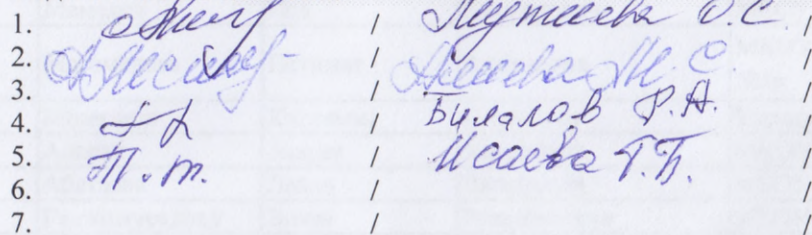 1. / Мутиева О.С. /
2. / Алиева М.С. /
3. /
4. / Билалов Р.А. /
5. Т.т. / Исаева Г.Б. /
6. / /
7. / /